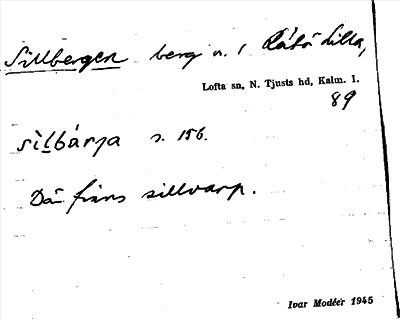 Sillbergen berg n. 1 Råtö Lilla,
Lofta sn, N. Tjusts hd, Kalm. l.
89
sìlbárja s. 156.
Dä finns sillvarp.
Ivar Modéer 1945